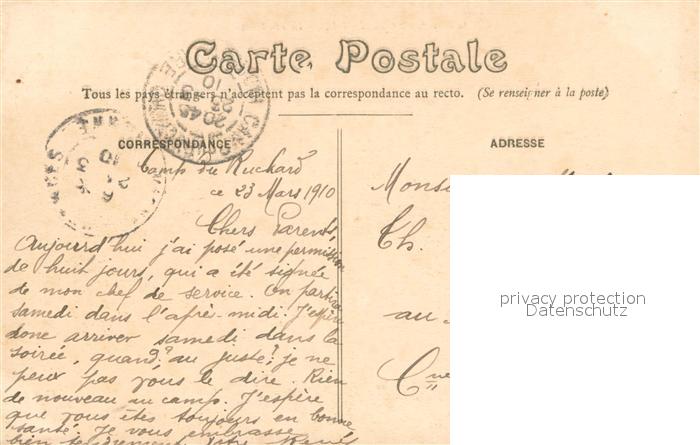 Carte Postale
Tous les pays étrangers n'acceptent pas la correspondance au recto. (Se renseigner à la poste)
CORRESPONDANCE
Camp du Ruchard
ce 23 Mars 1910
Chers Parents,
Aujourd'hui j'ai posé une permission
de huit jours, qui a été signée
de mon chef de service. On partira
samedi dans l'après-midi. J'espère
donc arriver samedi dans la
soirée, quand? au juste? je ne
peux pas vous le dire. Rien
de nouveau au camp. J'espère
que vous êtes toujours en bonne
santé. Je vous embrasse
bien tendrement. Votre
ADRESSE
Monsi
Th.
au
privacy protection
Datenschutz